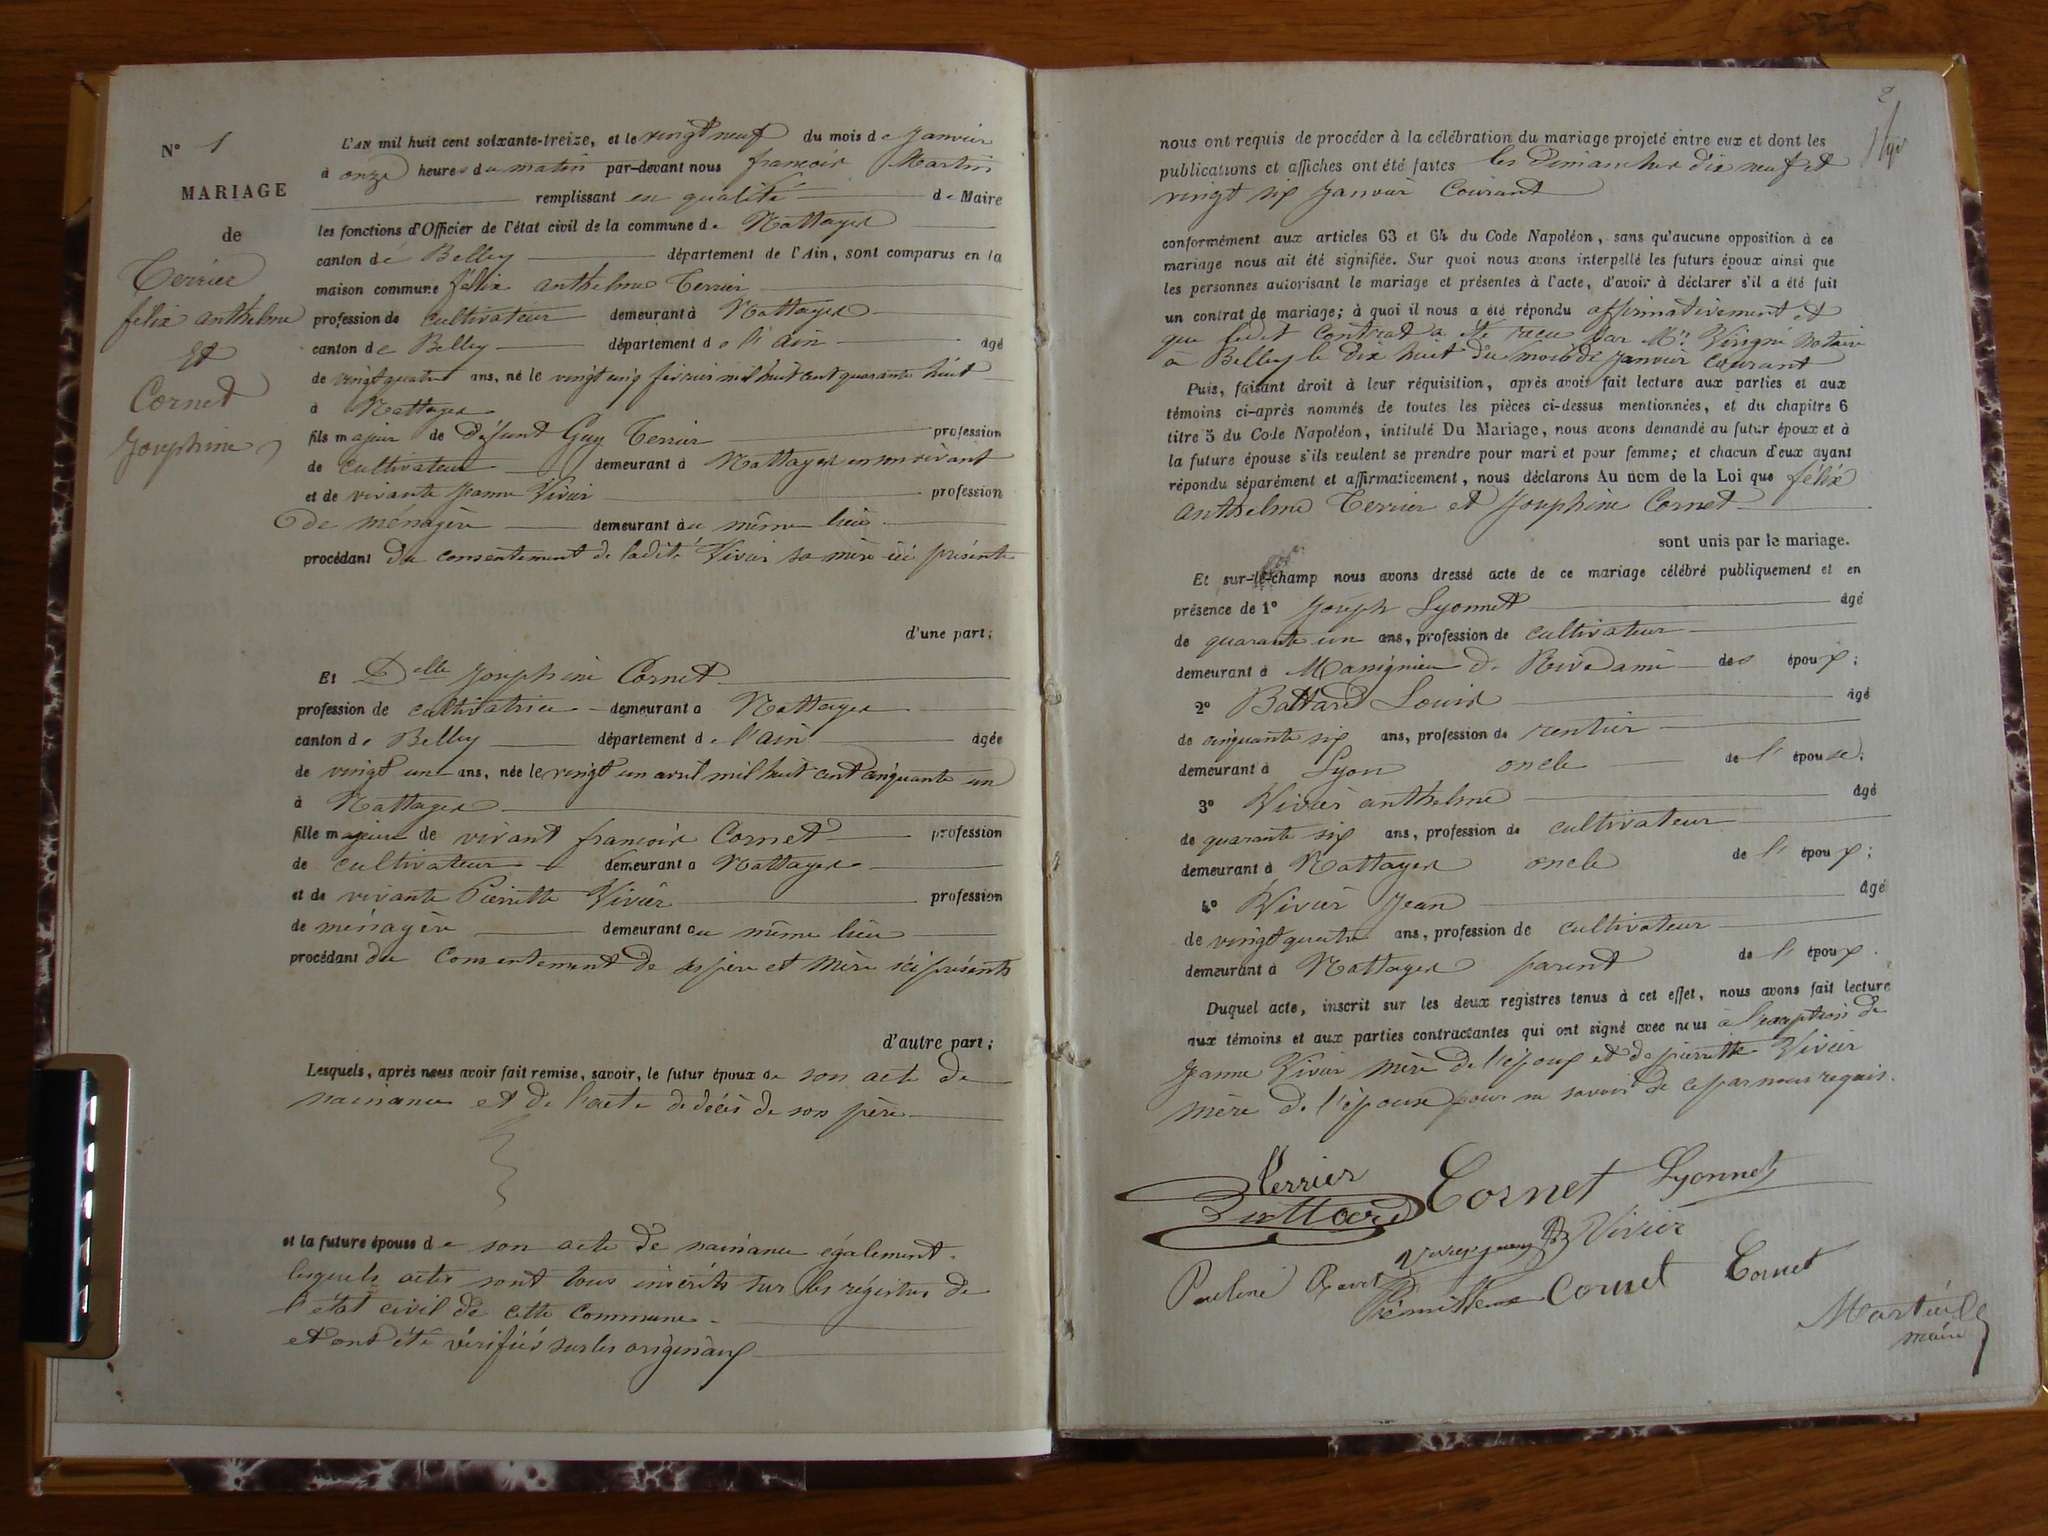 N° 1
MARIAGE
de
Terrier
félix anthelme
Et
Cornet
Josephine
L'AN mil huit cent soixante-treize, et le vingt neuf du mois de Janvier
à onze heures du matin par-devant nous françois Martin
remplissant en qualité de Maire
les fonctions d'Officier de l'état civil de la commune de Nattages
canton de Belley département de l'Ain, sont comparus en la
maison commune félix anthelme Terrier
profession de cultivateur demeurant à Nattages
canton de Belley département de l'ain âgé
de vingt quatre ans, né le vingt cinq février mil huit cent quarante huit
à Nattages
fils majeur de défunt Guy Terrier profession
de cultivateur demeurant à Nattages en son vivant
et de vivante Jeanne Vivier profession
de ménagère demeurant au même lieu
procédant du consentement de ladite Vivier sa mère ici présente
d'une part;
Et Delle Josephine Cornet
profession de cultivatrice demeurant à Nattages
canton de Belley département de l'ain âgée
de vingt un ans, née le vingt un avril mil huit cent cinquante un
à Nattages
fille majeure de vivant françois Cornet profession
de cultivateur demeurant à Nattages
et de vivante Pierrette Vivier profession
de ménagère demeurant au même lieu
procédant du consentement de ses père et mère ici présents
d'autre part;
Lesquels, après nous avoir fait remise, savoir, le futur époux de son acte de
naissance et de l'acte de décès de son père
et la future épouse de son acte de naissance également
lesquels actes sont tous inscrits sur les régistres de
l'état civil de cette commune
et ont été vérifiés sur les originaux
2
nous ont requis de procéder à la célébration du mariage projeté entre eux et dont les
publications et affiches ont été faites les Dimanches dix neuf et
vingt six Janvier Courant
conformément aux articles 63 et 64 du Code Napoléon, sans qu'aucune opposition à ce
mariage nous ait été signifiée. Sur quoi nous avons interpellé les futurs époux ainsi que
les personnes autorisant le mariage et présentes à l'acte, d'avoir à déclarer s'il a été fait
un contrat de mariage; à quoi il nous a été répondu affirmativement et
que ledit contrat a été reçu par Me Notaire
à Belley le dix huit du mois de Janvier courant
Puis, faisant droit à leur réquisition, après avoir fait lecture aux parties et aux
témoins ci-après nommés de toutes les pièces ci-dessus mentionnées, et du chapitre 6
titre 5 du Code Napoléon, intitulé Du Mariage, nous avons demandé au futur époux et à
la future épouse s'ils veulent se prendre pour mari et pour femme; et chacun d'eux ayant
répondu séparément et affirmativement, nous déclarons Au nom de la Loi que félix
anthelme Terrier et Josephine Cornet
sont unis par le mariage.
Et sur-le-champ nous avons dressé acte de ce mariage célébré publiquement et en
présence de 1° Joseph Lyonnet âgé
de quarante un ans, profession de cultivateur
demeurant à Massignieu de Rive ami des époux;
2° Battard Louis âgé
de cinquante six ans, profession de rentier
demeurant à Lyon oncle de l'épouse;
3° Vivier anthelme âgé
de quarante six ans, profession de cultivateur
demeurant à Nattages oncle de l'époux;
4° Vivier Jean âgé
de vingt quatre ans, profession de cultivateur
demeurant à Nattages parent de l'époux.
Duquel acte, inscrit sur les deux registres tenus à cet effet, nous avons fait lecture
aux témoins et aux parties contractantes qui ont signé avec nous à l'exception de
Jeanne Vivier mère de l'époux et de pierrette Vivier
mère de l'épouse pour ne savoir de ce par nous requis.
Terrier
Battard Cornet Lyonnet
Vivier
Pauline
Cornet Cornet
Martin
maire